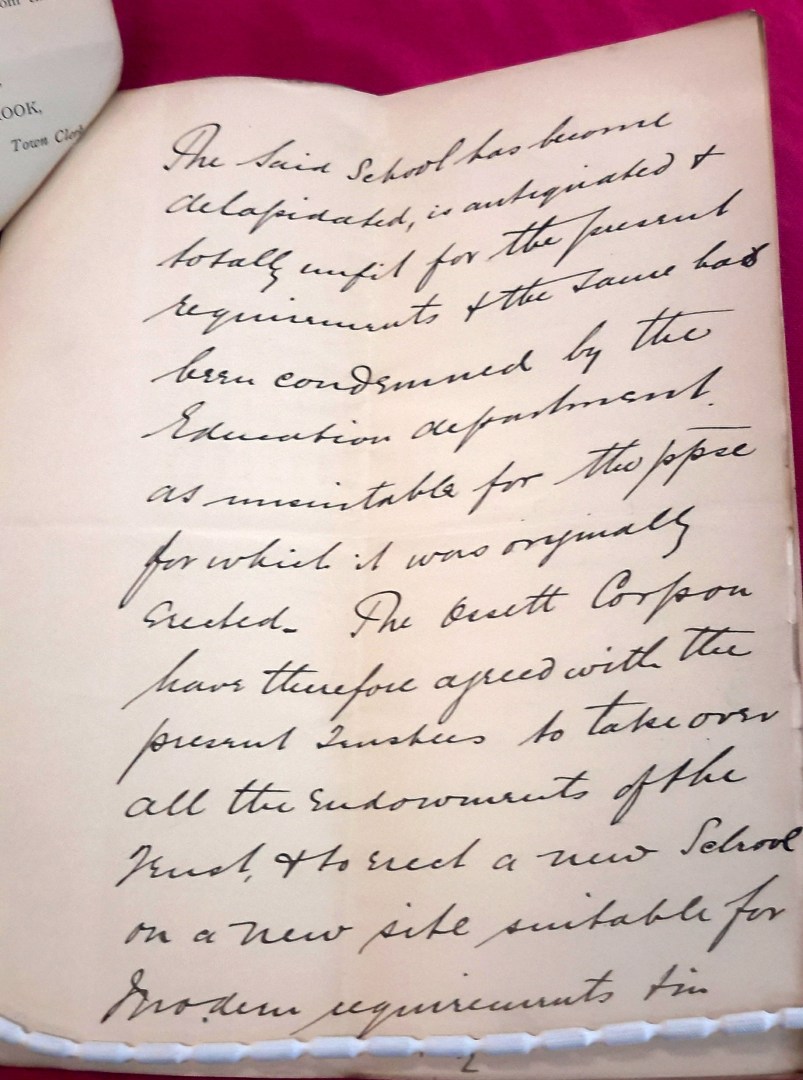 OOK,
Town Clerk
The said School has become
delapidated, is antiquated &
totally unfit for the present
requirements & the same has
been condemned by the
Education department.
as unsuitable for the ppse
for which it was originally
erected. The Ossett Corpon
have therefore agreed with the
present Trustees to take over
all the Endowments of the
Trust, & to erect a new School
on a new site suitable for
Modern requirements & in